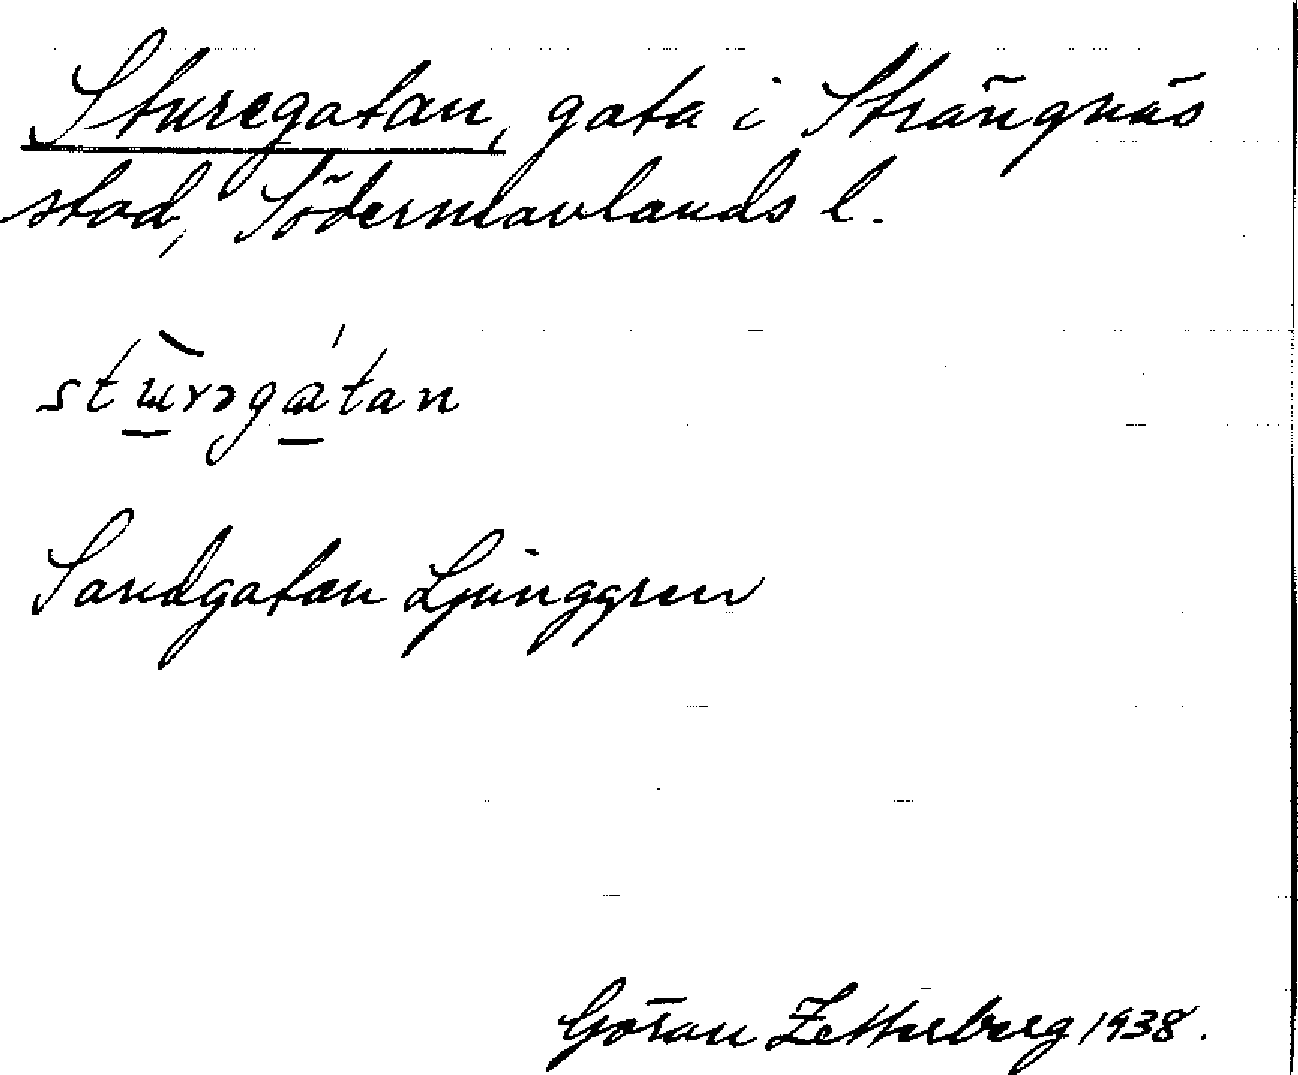 Sturegatan, gata i Strängnäs
stad, Södermanlands l.
Sandgatan Ljunggren
Göran Zetterberg 1938.